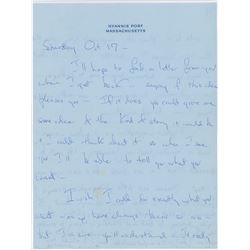 HYANNIS PORT
MASSACHUSETTS
Saturday Oct 17 -
I'll hope to get a letter from you
when I get back - saying if this idea
pleases you - If it does you could give me
some idea of the kind of story it would be
& I could think about it so when I see
you I'll be able to tell you what you
want -
I wish I could do exactly what you
want
but I you'll understand - I really